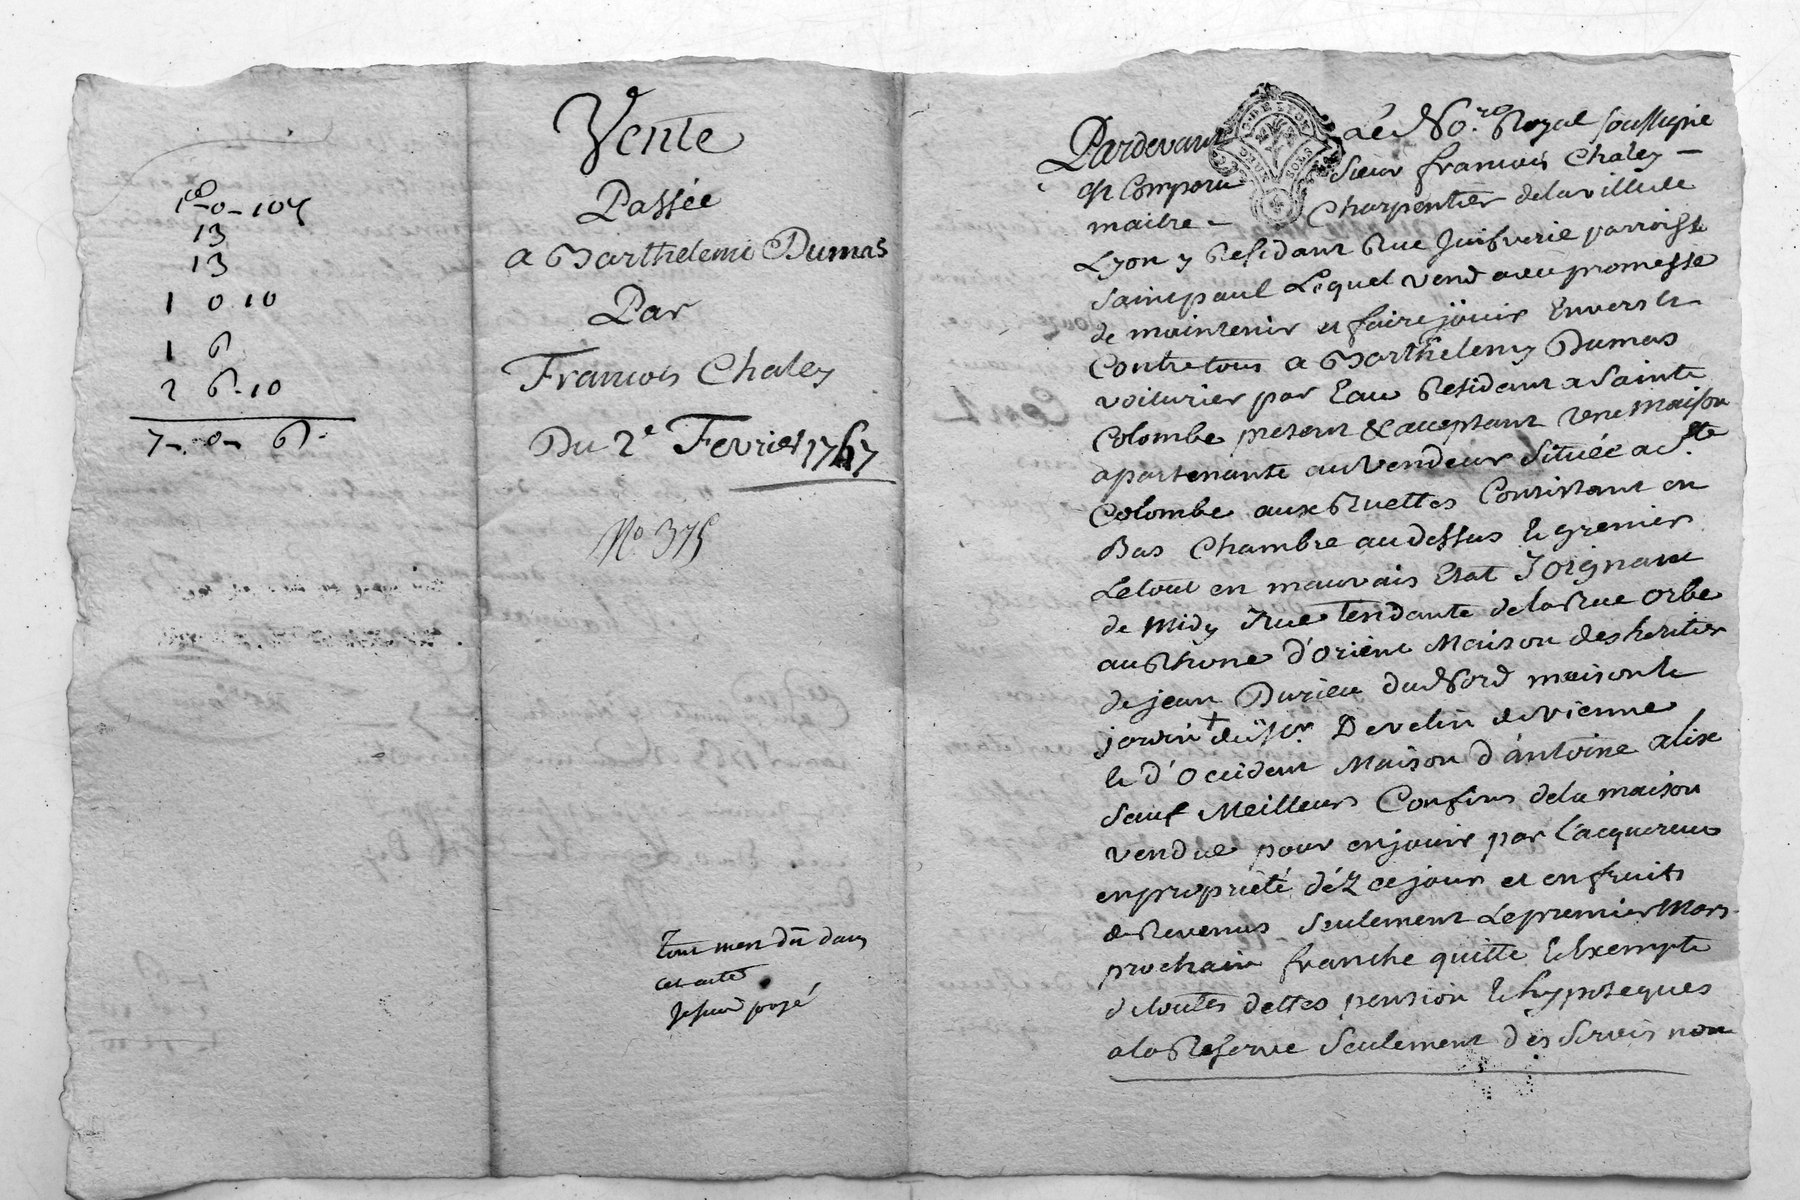 1 - 0 - 10
13
13
1 0 10
1 6
2 6 - 10
7 - 0 - 6
Vente
Passée
a Barthelemi Dumas
Par
Francois Chaley
Du 2e Fevrier 1767
No 375
dans
cet acte
Pardevant Le No.re Royal soussigné
est Comparu sieur francois Chaley
maitre Charpentier de la ville de
Lyon y Residant Rue Juifverie parroisse
Saint paul Lequel vend avec promesse
de maintenir et faire joüir Envers et
Contre tous a Barthelemy Dumas
voiturier par Eau Residant a Sainte
Colombe present & acceptant Une Maison
apartenante au Vendeur Située a Ste
Colombe aux Ruettes Consistant en
Bas Chambre au dessus et grenier
Le tout en mauvais Etat Joignant
de Midy Rue tendante de la Rue Orbe
au Rhone d'orient Maison des heritiers
de jean Durieu du Nord maison et
jardin du Sr. Develin de Vienne
et d'Occident Maison d'Antoine Alix
Sauf Meilleurs Confins de la maison
vendue pour en jouir par l'acquereur
en proprieté déz ce jour et en fruits
& Revenus Seulement Le premier Mars
prochain franche quitte et Exempte
de toutes dettes pension et hypoteques
a la Reserve Seulement des Servis non